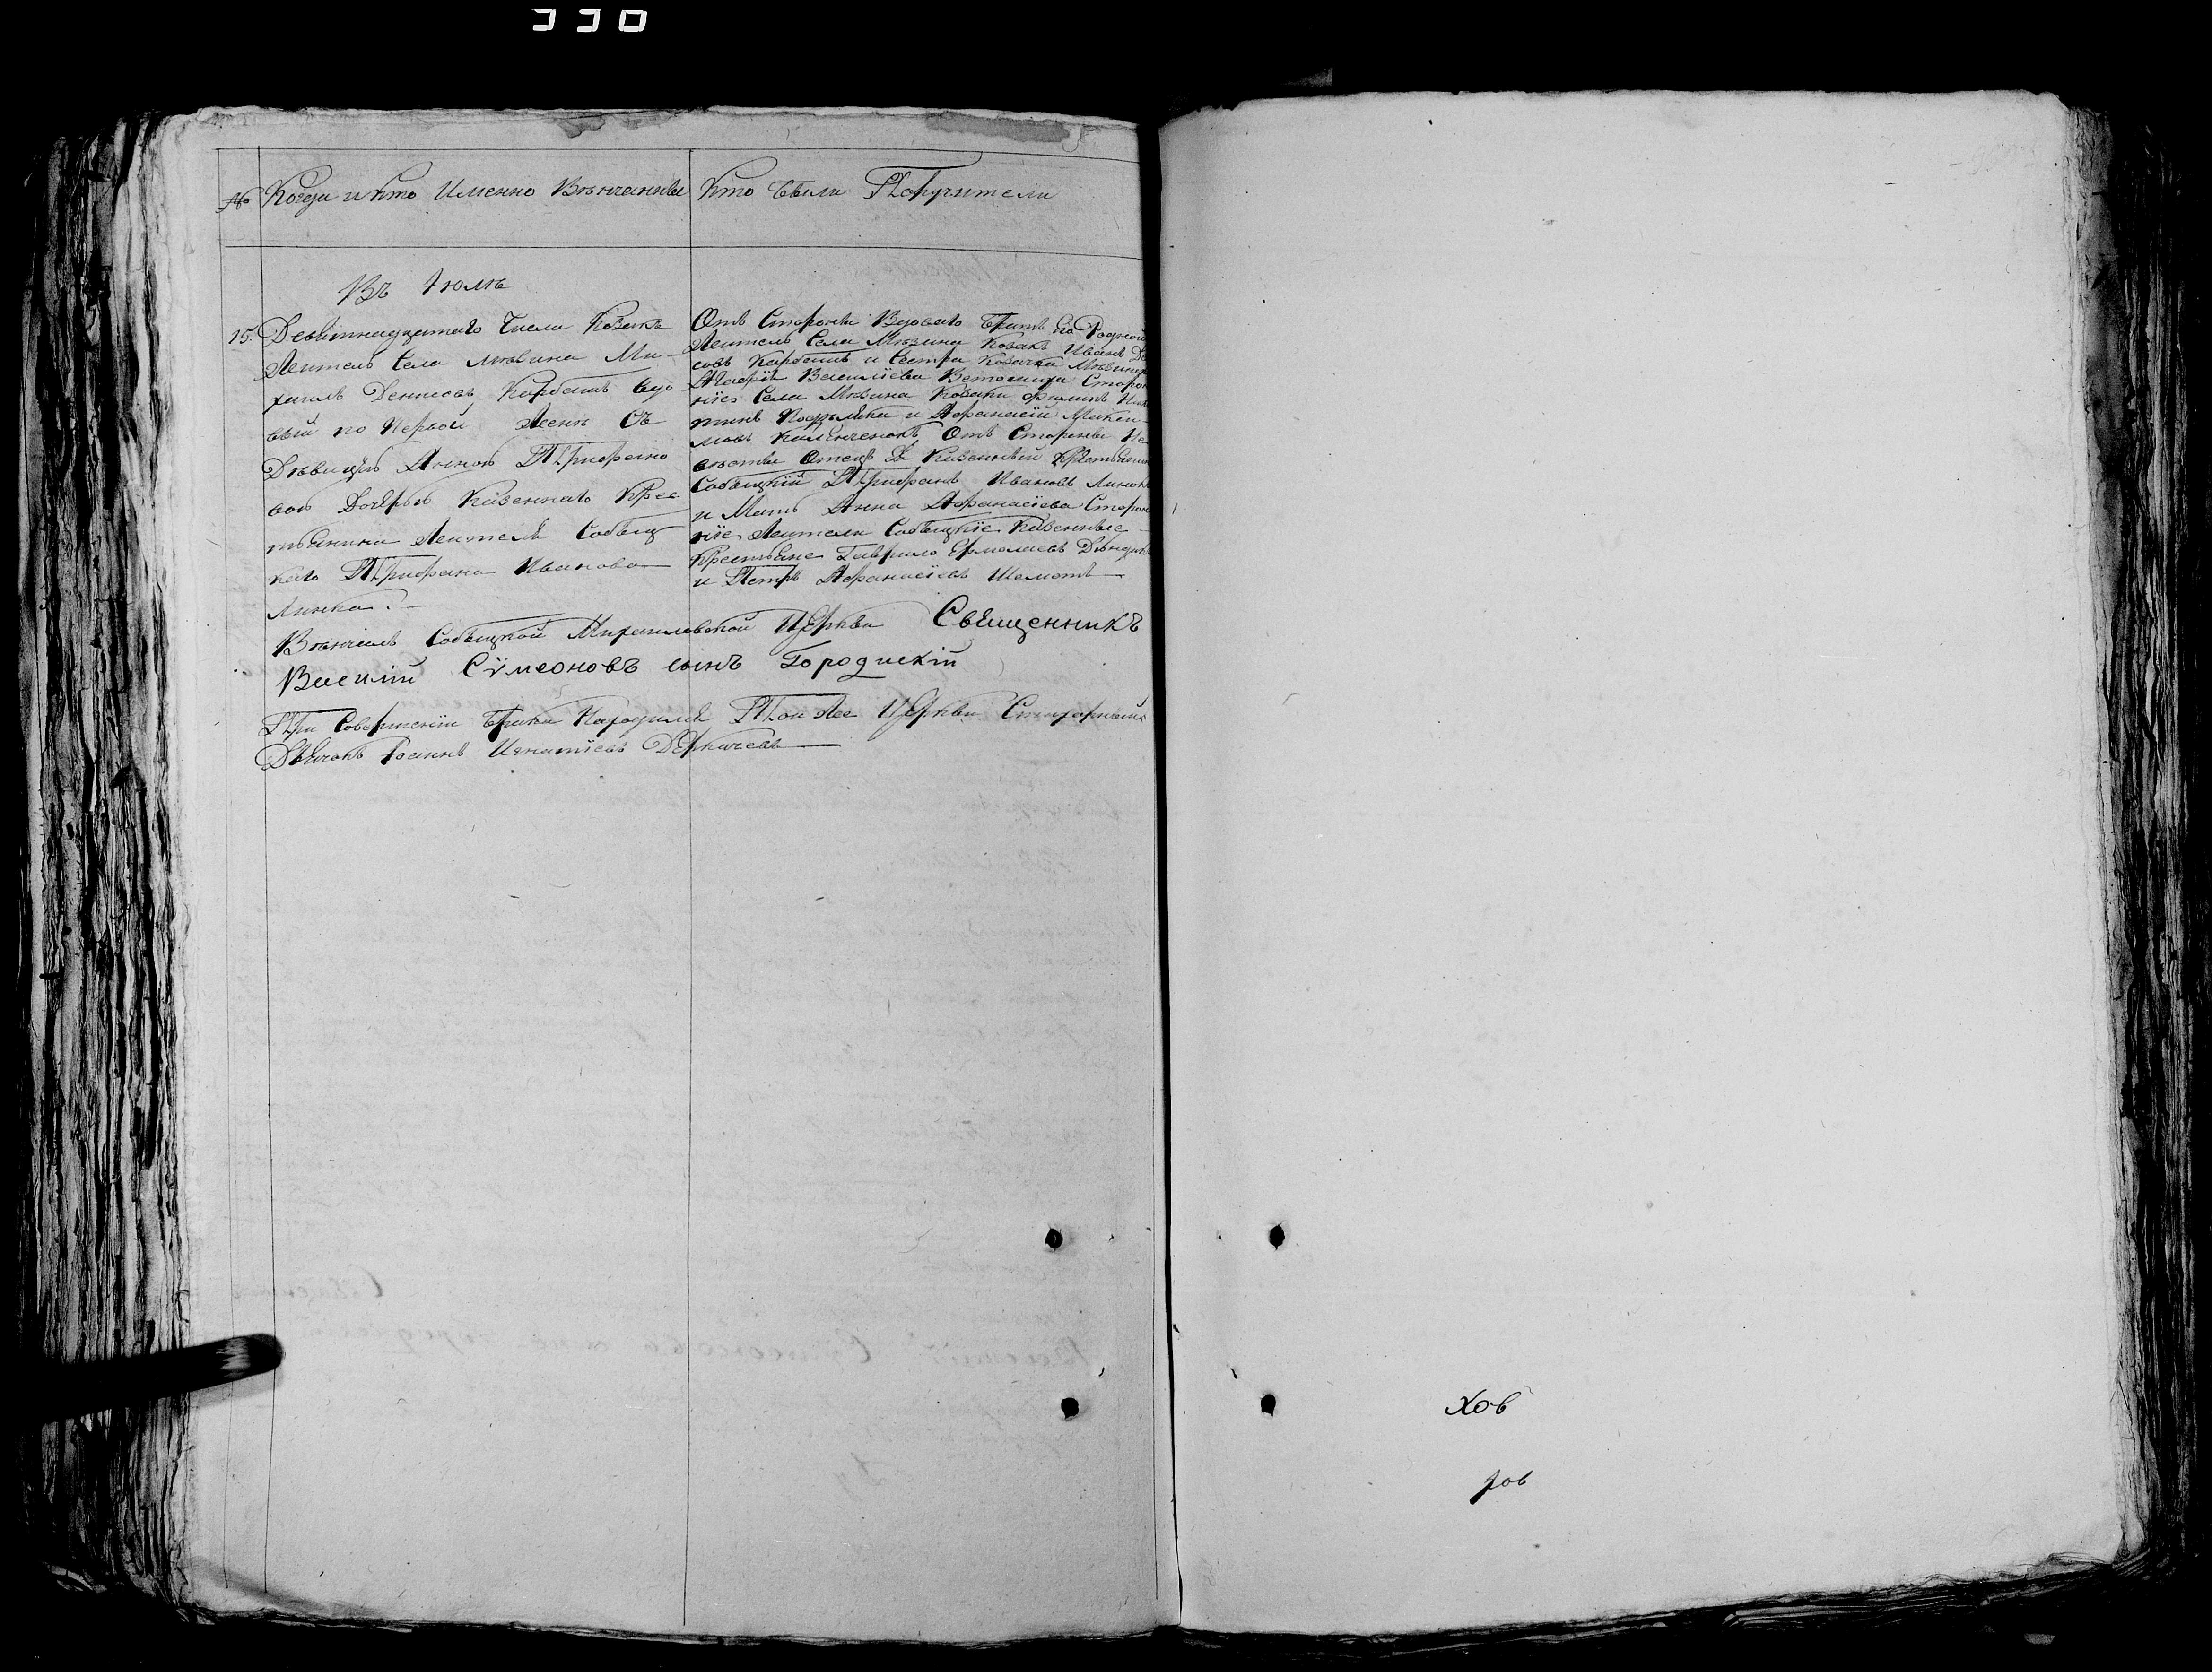 330
№ Когда и кто Именно Венчанны
Кто Были Поручители
Въ Іюлѣ
15. Девятнадцатаго Числа Козакъ
Житель Села Мѣзина Ми-
хаилъ Денисовъ Карбашъ вдо
вый по Первой Женѣ Съ
Дѣвицею Анною Трифоно
вою Дочерью Казеннаго Крес
тьянина Жителя Собыц
каго Трифона Иванова
Линка.
Отъ Стороны Вдоваго Братъ Его Родной
Житель Села Мѣзина Козакъ Иванъ Де
совъ Карбашъ и Сестра Козачка
Марія Василіева Сторон
ніе Села Мѣзина Козаки Филипъ
и Афанасій
Отъ Стороны Не
вѣсты Отецъ Ея Казенный Крестьянин
Собыцкій Трифонъ Ивановъ Линок
и Мать Анна Афанасіева Сторон
ніе Жители Собыцкіе Казенные
Крестьяне Гаврило Ермолаевъ
и Петръ Афанасіевъ Шеметъ
Вѣнчалъ Собыцкой Михаиловской Церкви Священникъ
Василій Сѵмеоновъ сынъ Городискій
При Совершеніи Брака Находился Той Же Церкви
Дьячокъ Іоаннъ Игнатіевъ Деркачевъ
Хов
ров